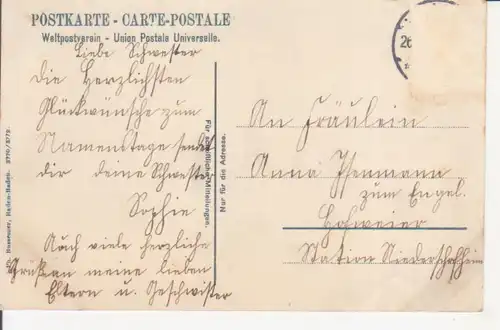 POSTKARTE - CARTE-POSTALE
Weltpostverein - Union Postale Universelle.
Liebe Schwester
Die Herzlichsten
Glückwünsche zum
Namenstage sendet
dir deine Schwester
Sophie
Auch viele herzliche
Grüße an meine lieben
Eltern u. Geschwister
Für schriftliche Mitteilungen.
Nur für die Adresse.
Baden-Baden. 3770/3779.
26
An Fräulein
Anna Isenmann
zum Engel.
Hofweier
Station Niederschopfheim